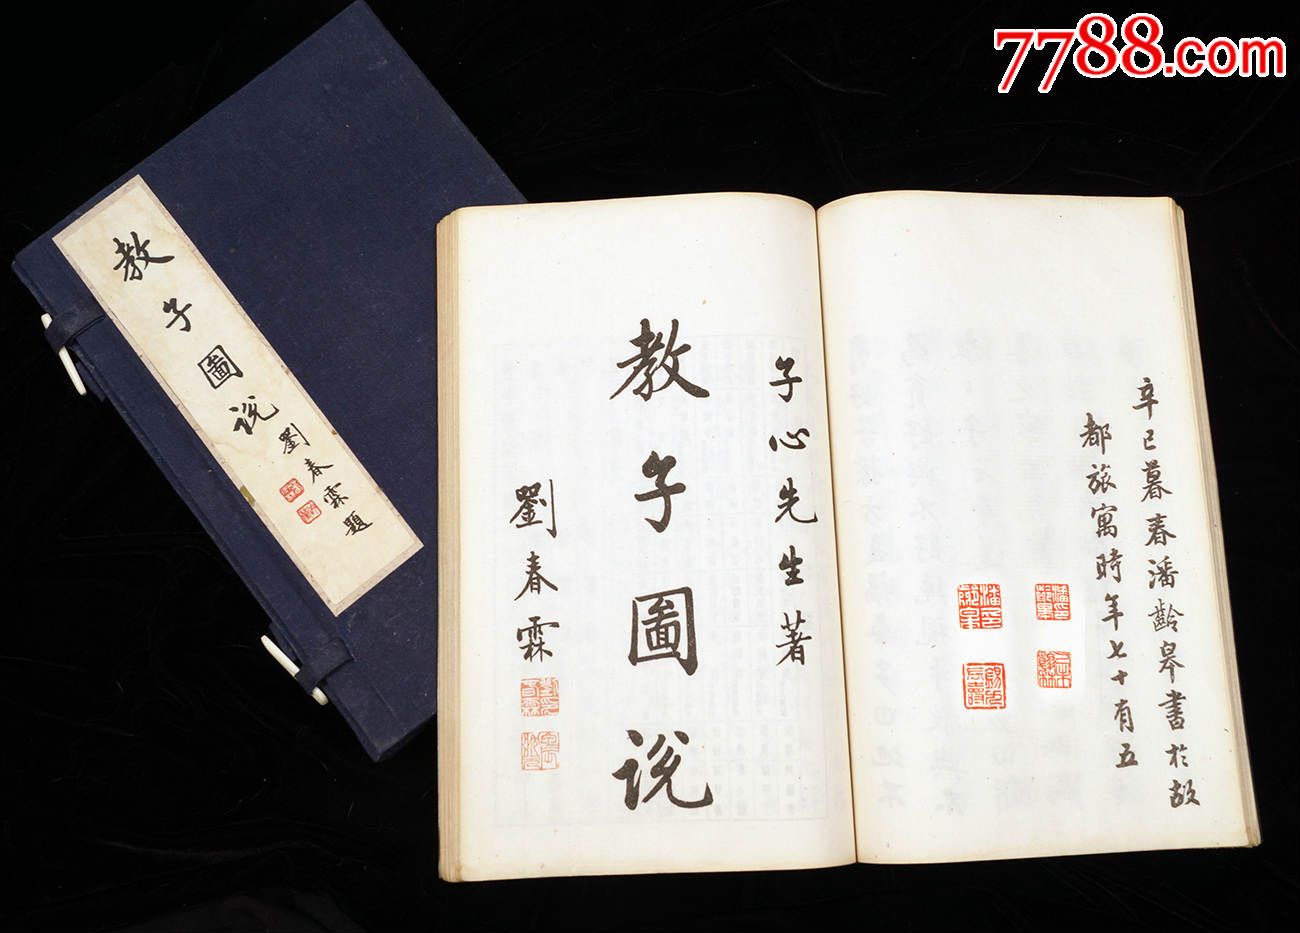 7788.com
教子圖说
劉春霖題
子心先生著
教子圖说
劉春霖
辛巳暮春潘齡皋書於故
都旅寓時年七十有五